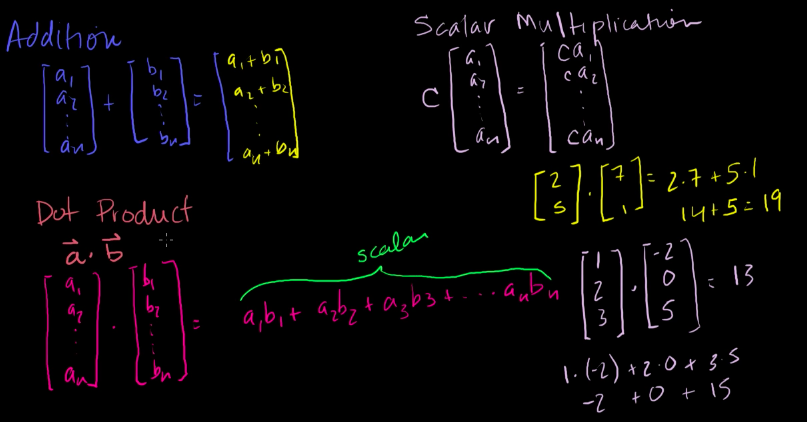 Addition
[a₁ a₂ ⋮ aₙ] + [b₁ b₂ ⋮ bₙ] = [a₁+b₁ a₂+b₂ ⋮ aₙ+bₙ]
Scalar Multiplication
c [a₁ a₂ ⋮ aₙ] = [ca₁ ca₂ ⋮ caₙ]
[2 5] · [7 1] = 2·7 + 5·1
14+5=19
Dot Product
a⃗ · b⃗
scalar
[a₁ a₂ ⋮ aₙ] · [b₁ b₂ ⋮ bₙ] = a₁b₁ + a₂b₂ + a₃b₃ + ··· aₙbₙ
[1 2 3] · [-2 0 5] = 13
1·(-2) + 2·0 + 3·5
-2 + 0 + 15